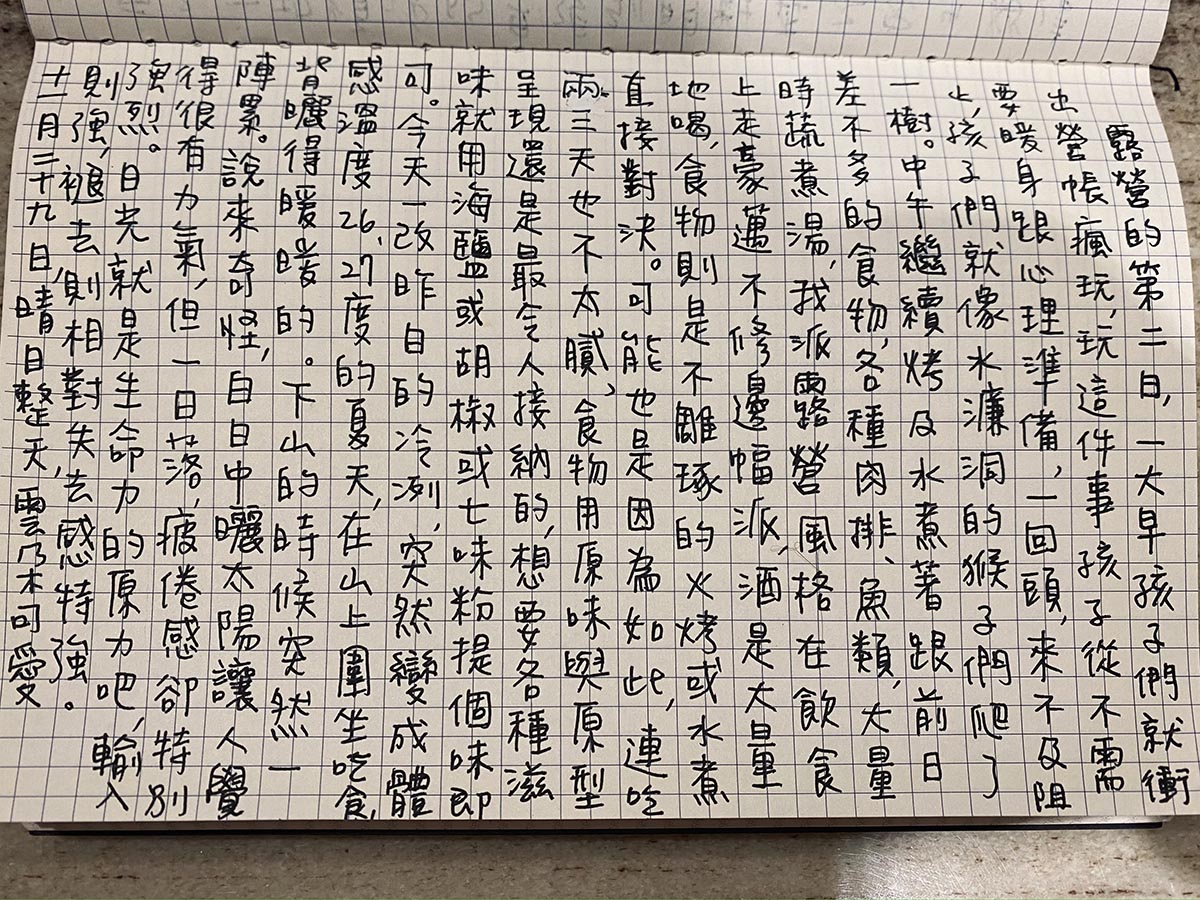 露營的第二日，一大早孩子們就衝
出營帳瘋玩，玩這件事孩子從不需
要暖身跟心理準備，一回頭，來不及阻
止，孩子們就像水濂洞的猴子們爬了
一樹。中午繼續烤及水煮著跟前日
差不多的食物，各種肉排、魚類，大量
時蔬煮湯，我派露營風格在飲食
上走豪邁不修邊幅派，酒是大量
地喝，食物則是不雕琢的火烤或水煮
直接對決。可能也是因為如此，連吃
兩三天也不太膩，食物用原味與原型
呈現還是最令人接納的，想要各種滋
味就用海鹽或胡椒或七味粉提個味即
可。今天一改昨日的冷冽，突然變成體
感溫度26，27度的夏天，在山上圍坐吃食，
背曬得暖暖的。下山的時候突然一
陣累。說來奇怪，白日中曬太陽讓人覺
得很有力氣，但一日落，疲倦感卻特別
強烈。日光就是生命力的原力吧，輸入
則強，褪去，則相對失去感特強。
十一月二十九日，晴日整天，雲朵可愛